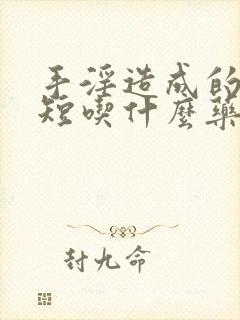 手淫造成的
短喫什麼藥
封九命